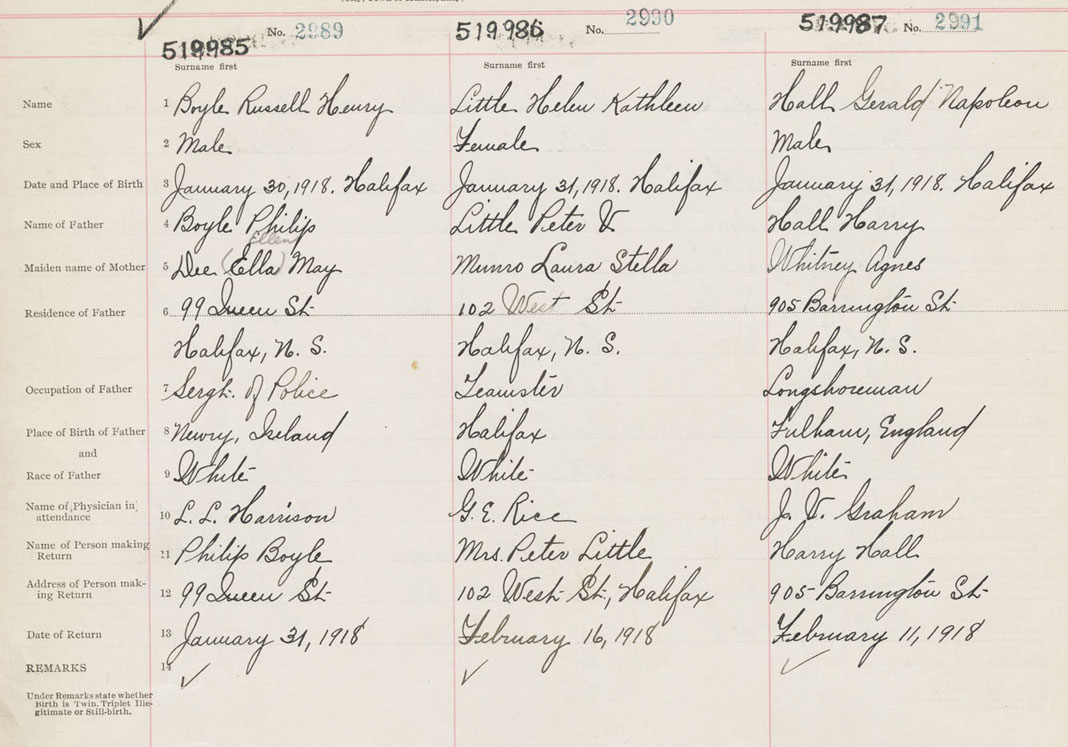 No. 2989
519986
No. 2990
519987
No. 2991
519985
Surname first
Surname first
Surname first
Name
1 Boyle Russell Henry
Little Helen Kathleen
Hall Gerald Napoleon
Sex
2 Male
Female
Male
Date and Place of Birth
3 January 30, 1918. Halifax
January 31, 1918. Halifax
January 31, 1918. Halifax
Name of Father
4 Boyle Philip
Little Peter V
Hall Harry
Ellen
Maiden name of Mother
5 Dee (Ella) May
Munro Laura Stella
Whitney Agnes
Residence of Father
6 99 Queen St.
102 West St.
905 Barrington St.
Halifax, N. S.
Halifax, N. S.
Halifax, N. S.
Occupation of Father
7 Sergt. of Police
Teamster
Longshoreman
Place of Birth of Father
8 Newry, Ireland
Halifax
Fulham, England
and
Race of Father
9 White
White
White
Name of Physician in
attendance
10 L. L. Harrison
G. E. Rice
J. V. Graham
Name of Person making
Return
11 Philip Boyle
Mrs. Peter Little
Harry Hall
Address of Person mak-
ing Return
12 99 Queen St.
102 West St., Halifax
905 Barrington St.
Date of Return
13 January 31, 1918
February 16, 1918
February 11, 1918
REMARKS
14
Under Remarks state whether
Birth is Twin, Triplet Ille-
gitimate or Still-birth.